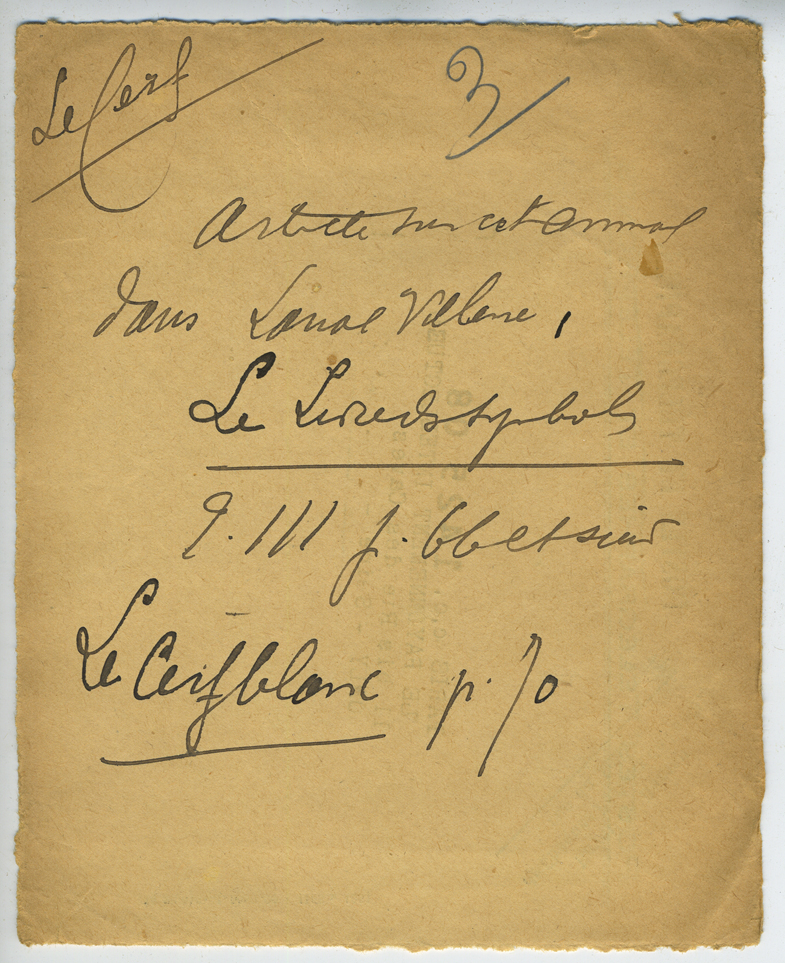 Le Cerf
3
Article sur cet animal
dans Lanoe Villene,
Le Livre des symboles
T. III p. 66 et suiv
Le Cerf blanc p. 70